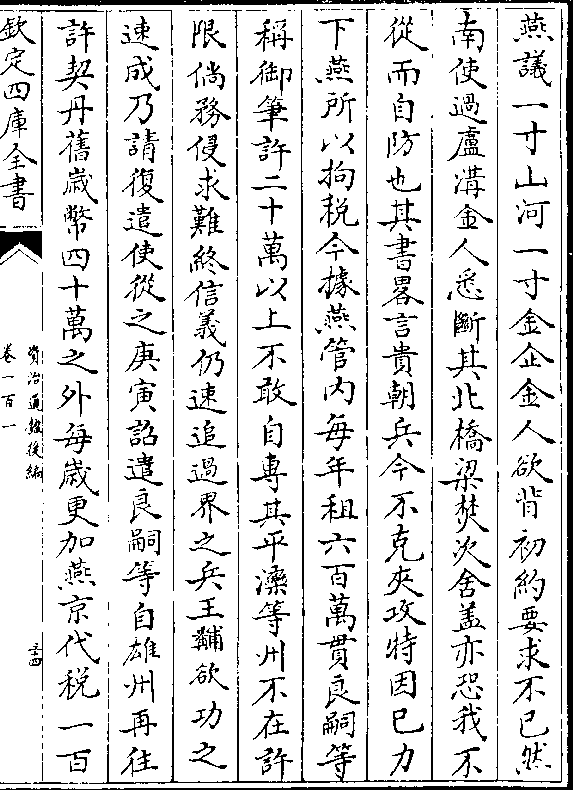 燕議一寸山河一寸金企金人欲背初約要求不已然
南使過盧溝金人悉斷其北橋梁焚次舍盖亦恐我不
從而自防也其書畧言貴朝兵今不克夾攻特因已力
下燕所以拘税今據燕管内每年租六百萬貫良嗣等
稱御筆許二十萬以上不敢自專其平灤等州不在許
限倘務侵求難終信義仍速追過界之兵王黼欲功之
速成乃請復遣使從之庚寅詔遣良嗣等自雄州再往
許契丹舊嵗幣四十萬之外每嵗更加燕京代税一百
欽定四庫全書
資治通鑑後編
卷一百一
三四